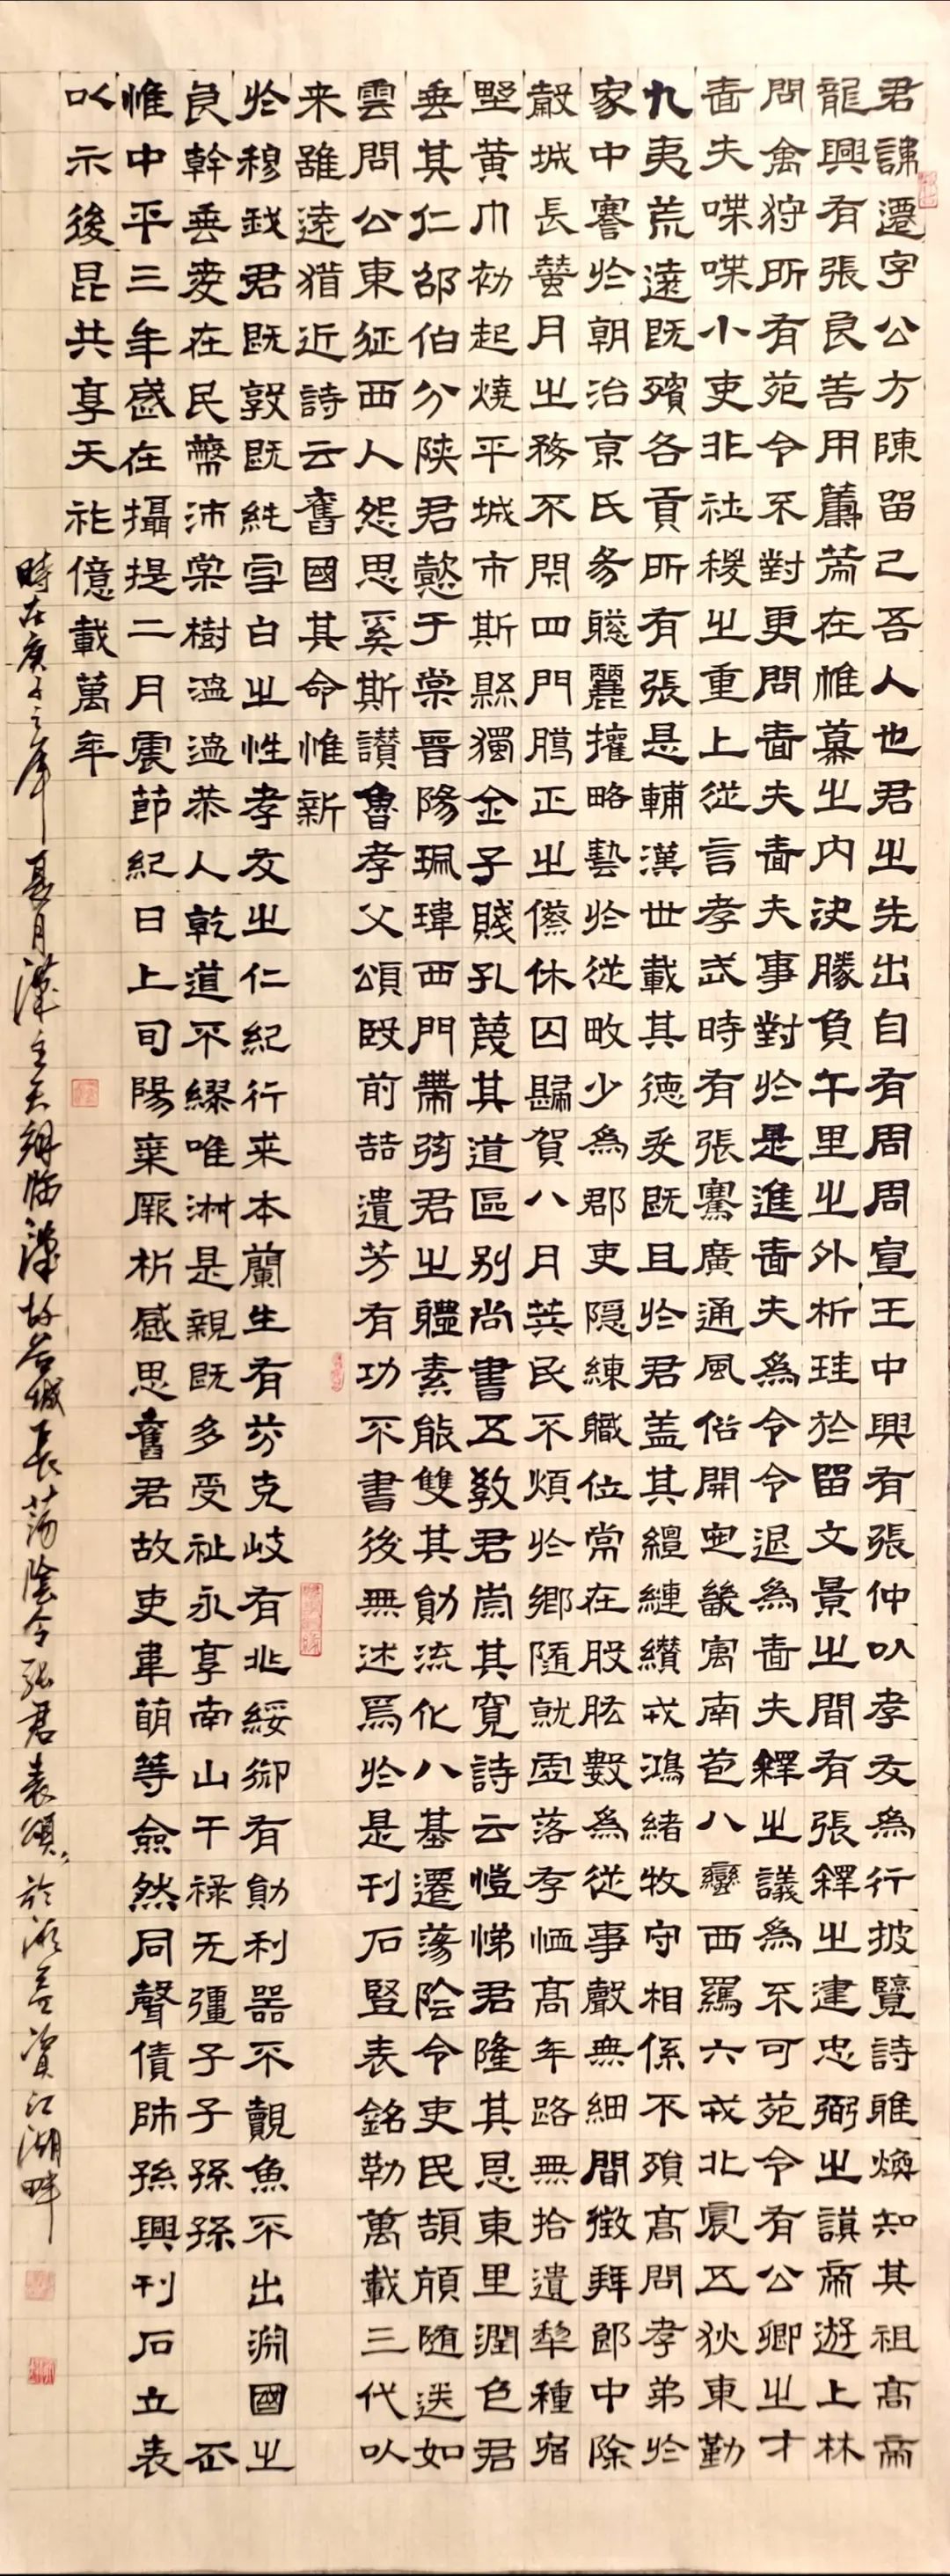 君諱遷字公方陳留己吾人也君之先出自有周周宣王中興有張仲以孝友為行披覽詩雅煥知其祖高帝
龍興有張良善用籌策在帷幕之內決勝負千里之外析珪於留文景之間有張釋之建忠弼之謨帝遊上林
問禽狩所有苑令不對更問嗇夫嗇夫事對於是進嗇夫為令令退為嗇夫釋之議為不可苑令有公卿之才
嗇夫喋喋小吏非社稷之重上從言孝武時有張騫廣通風俗開定畿寓南苞八蠻西羈六戎北震五狄東勤
九夷荒遠既殯各貢所有張是輔漢世載其德爰既且於君蓋其繵縺纘戎鴻緒牧守相係不殞高問孝弟於
家中謇於朝治京氏易聰麗權略藝於從畋少為郡吏隱練職位常在股肱數為從事聲無細聞徵拜郎中除
穀城長蠶月之務不閉四門臘正之僚休囚歸賀八月筭民不煩於鄉隨就虛落存恤高年路無拾遺犁種宿
野黃巾初起燒平城市斯縣獨全子賤孔蔑其道區別尚書五教君崇其寬詩云愷悌君隆其恩東里潤色君
垂其仁邵伯分陝君懿于棠晉陽珮瑋西門帶弦君之體素能雙其勛流化八基遷蕩陰令吏民頡頏隨送如
雲問公東征西人怨思奚斯讚魯孝父頌殷前喆遺芳有功不書後無述焉於是刊石豎表銘勒萬載三代以
来雖遠猶近詩云舊國其命惟新
於穆我君既敦既純雪白之性孝友之仁紀行来本蘭生有芬克岐有兆綏御有勛利器不覿魚不出淵國之
良幹垂愛在民蔽沛棠樹溫溫恭人乾道不繆唯淑是親既多受祉永享南山干祿无疆子子孫孫
惟中平三年歲在攝提二月震節紀日上旬陽氣厥析感思舊君故吏韋萌等僉然同聲賃師孫興刊石立表
以示後昆共享天祚億載萬年
時在庚子之年夏月漢臨漢故谷城長蕩陰令張君表頌於資江湖畔